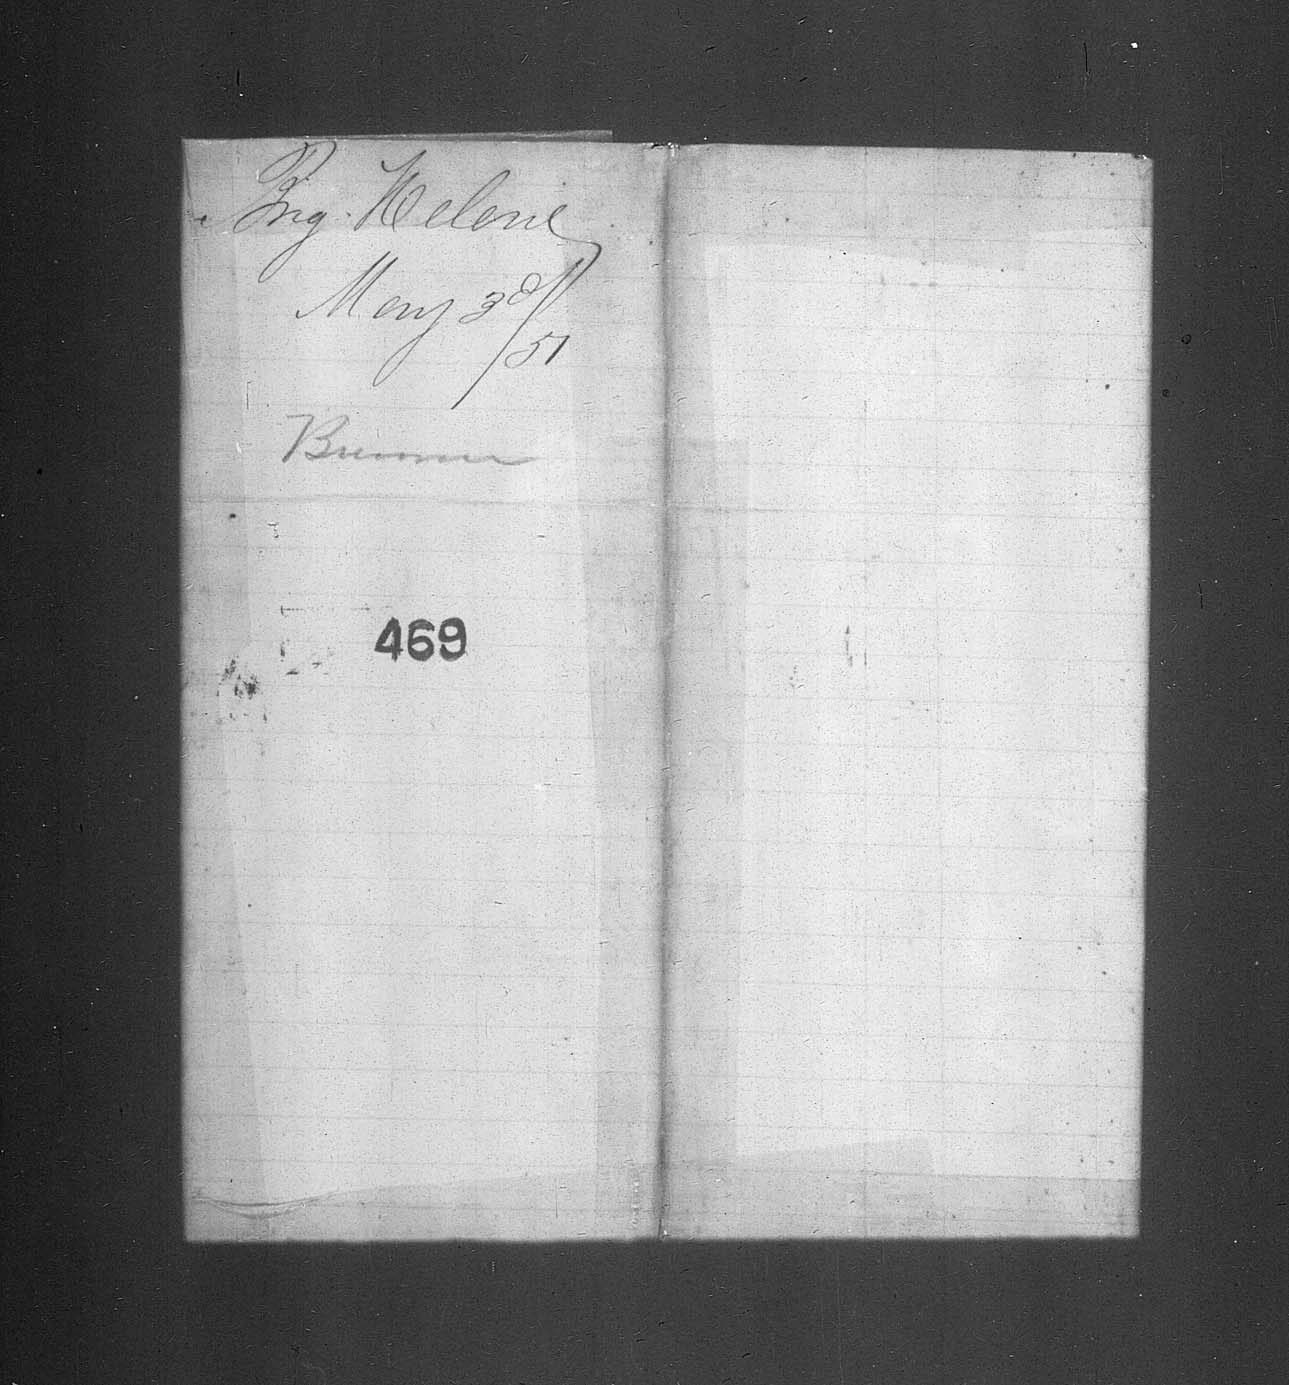 Brig Helene
May 3d/51
Brenner
469